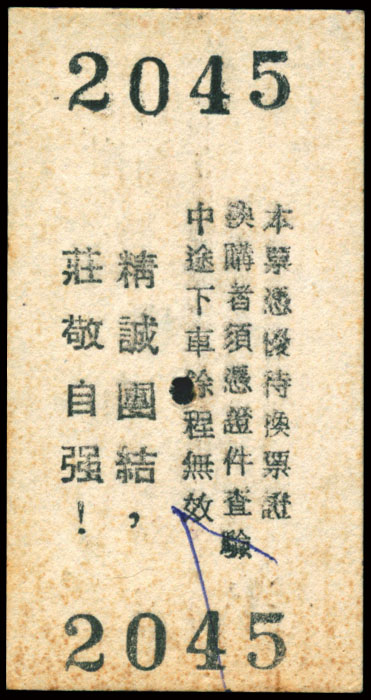 2045
本票憑優待換票證
換購者須憑證件查驗
中途下車餘程無效
精誠團結，
莊敬自强！
2045